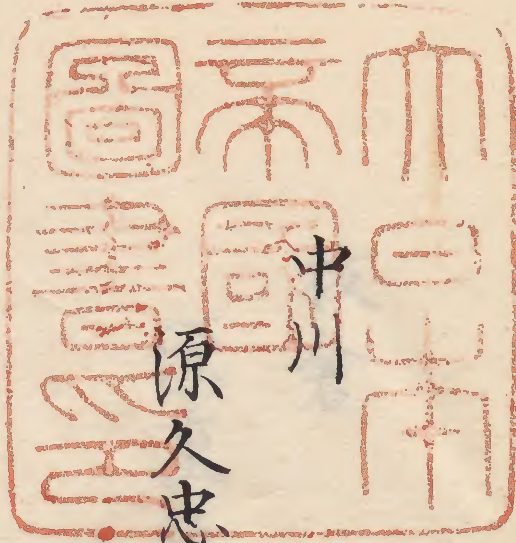 大日本
帝國
圖書印
中川
源久忠